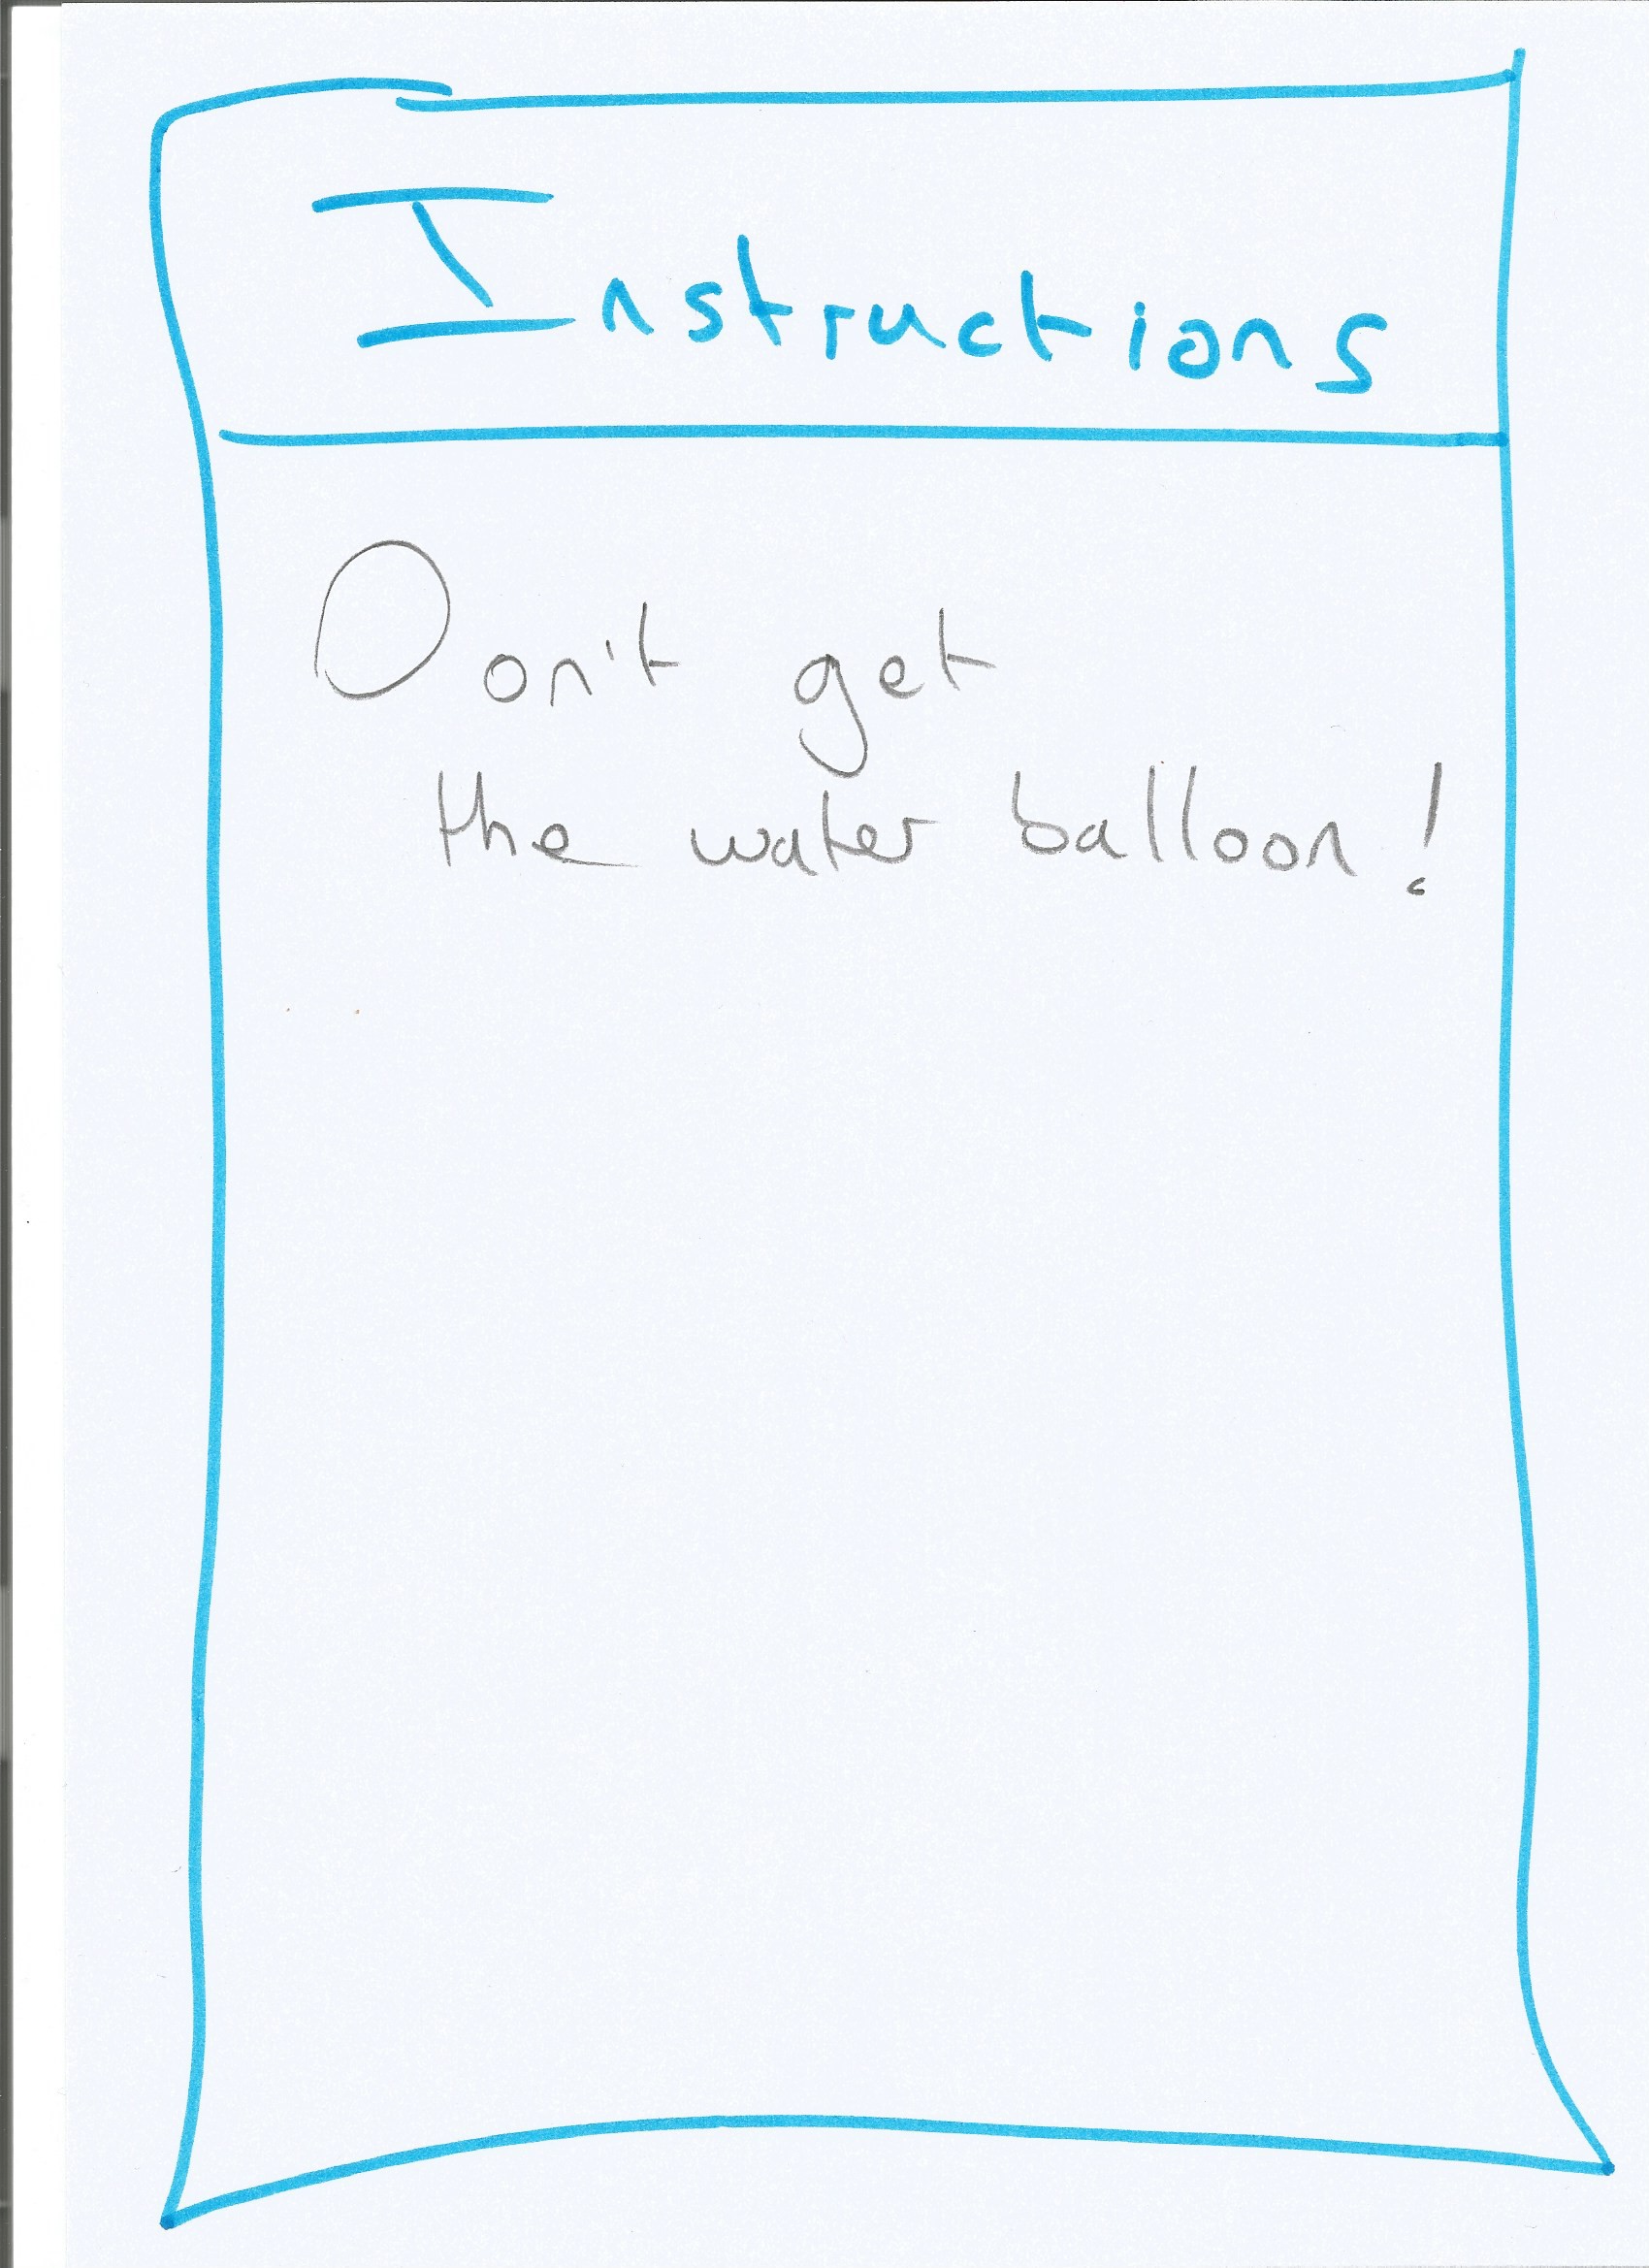 Instructions
Don't get
the water balloon!